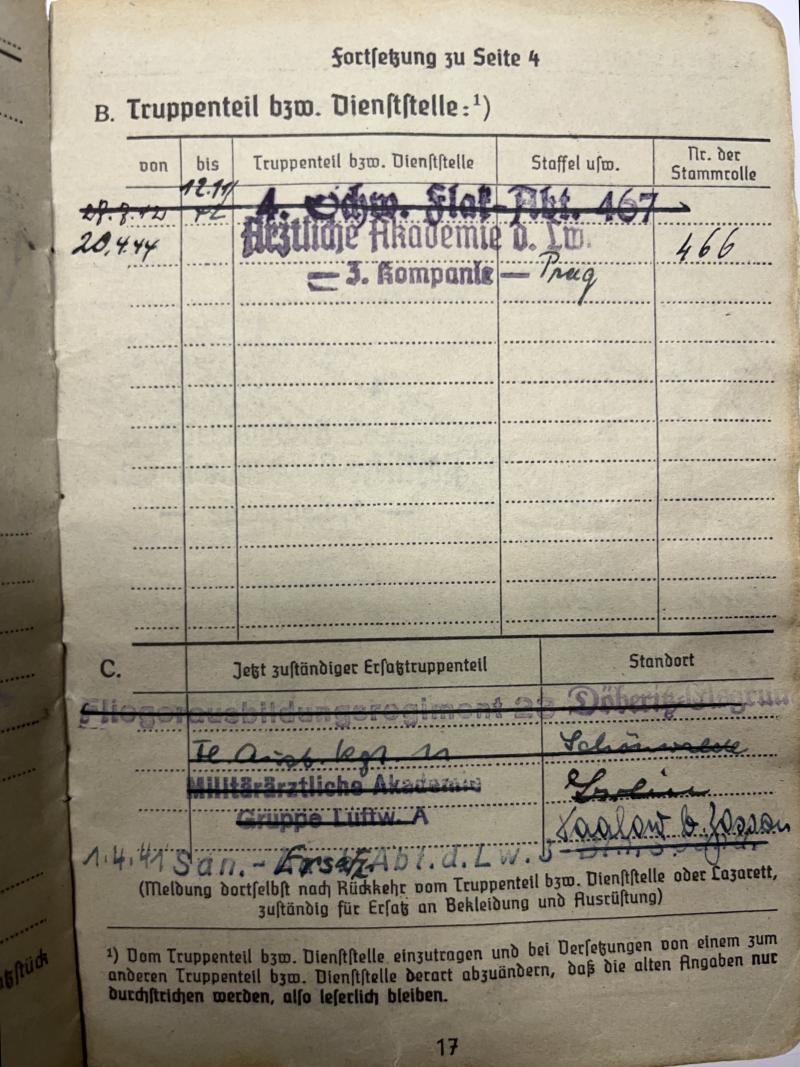 Fortsetzung zu Seite 4
B. Truppenteil bzw. Dienststelle:¹)
von bis Truppenteil bzw. Dienststelle Staffel usw. Nr. der Stammrolle
12.11
4. Schw. Flak-Abt. 467
20.4.44 Ärztliche Akademie d. Lw. 466
– 3. Kompanie – Prag
C. Jetzt zuständiger Ersatztruppenteil Standort
Fliegerausbildungsregiment 23 Döberitz-Elsgrund
Schönwalde
Militärärztliche Akademie Berlin
Gruppe Luftw. A
Saalow b. Zossen
San.-Ersatz Abt. d. Lw.
(Meldung dortselbst nach Rückkehr vom Truppenteil bzw. Dienststelle oder Lazarett,
zuständig für Ersatz an Bekleidung und Ausrüstung)
¹) Vom Truppenteil bzw. Dienststelle einzutragen und bei Versetzungen von einem zum
anderen Truppenteil bzw. Dienststelle derart abzuändern, daß die alten Angaben nur
durchstrichen werden, also leserlich bleiben.
17